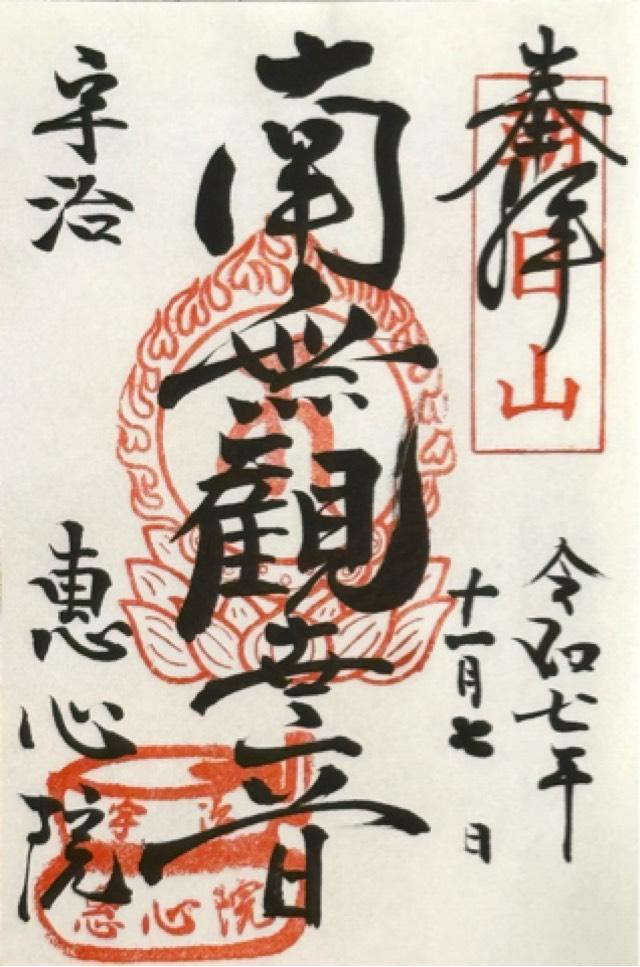 奉拝
朝日山
令和七年
十一月七日
南無観世音
宇治
恵心院
宇治
恵心院